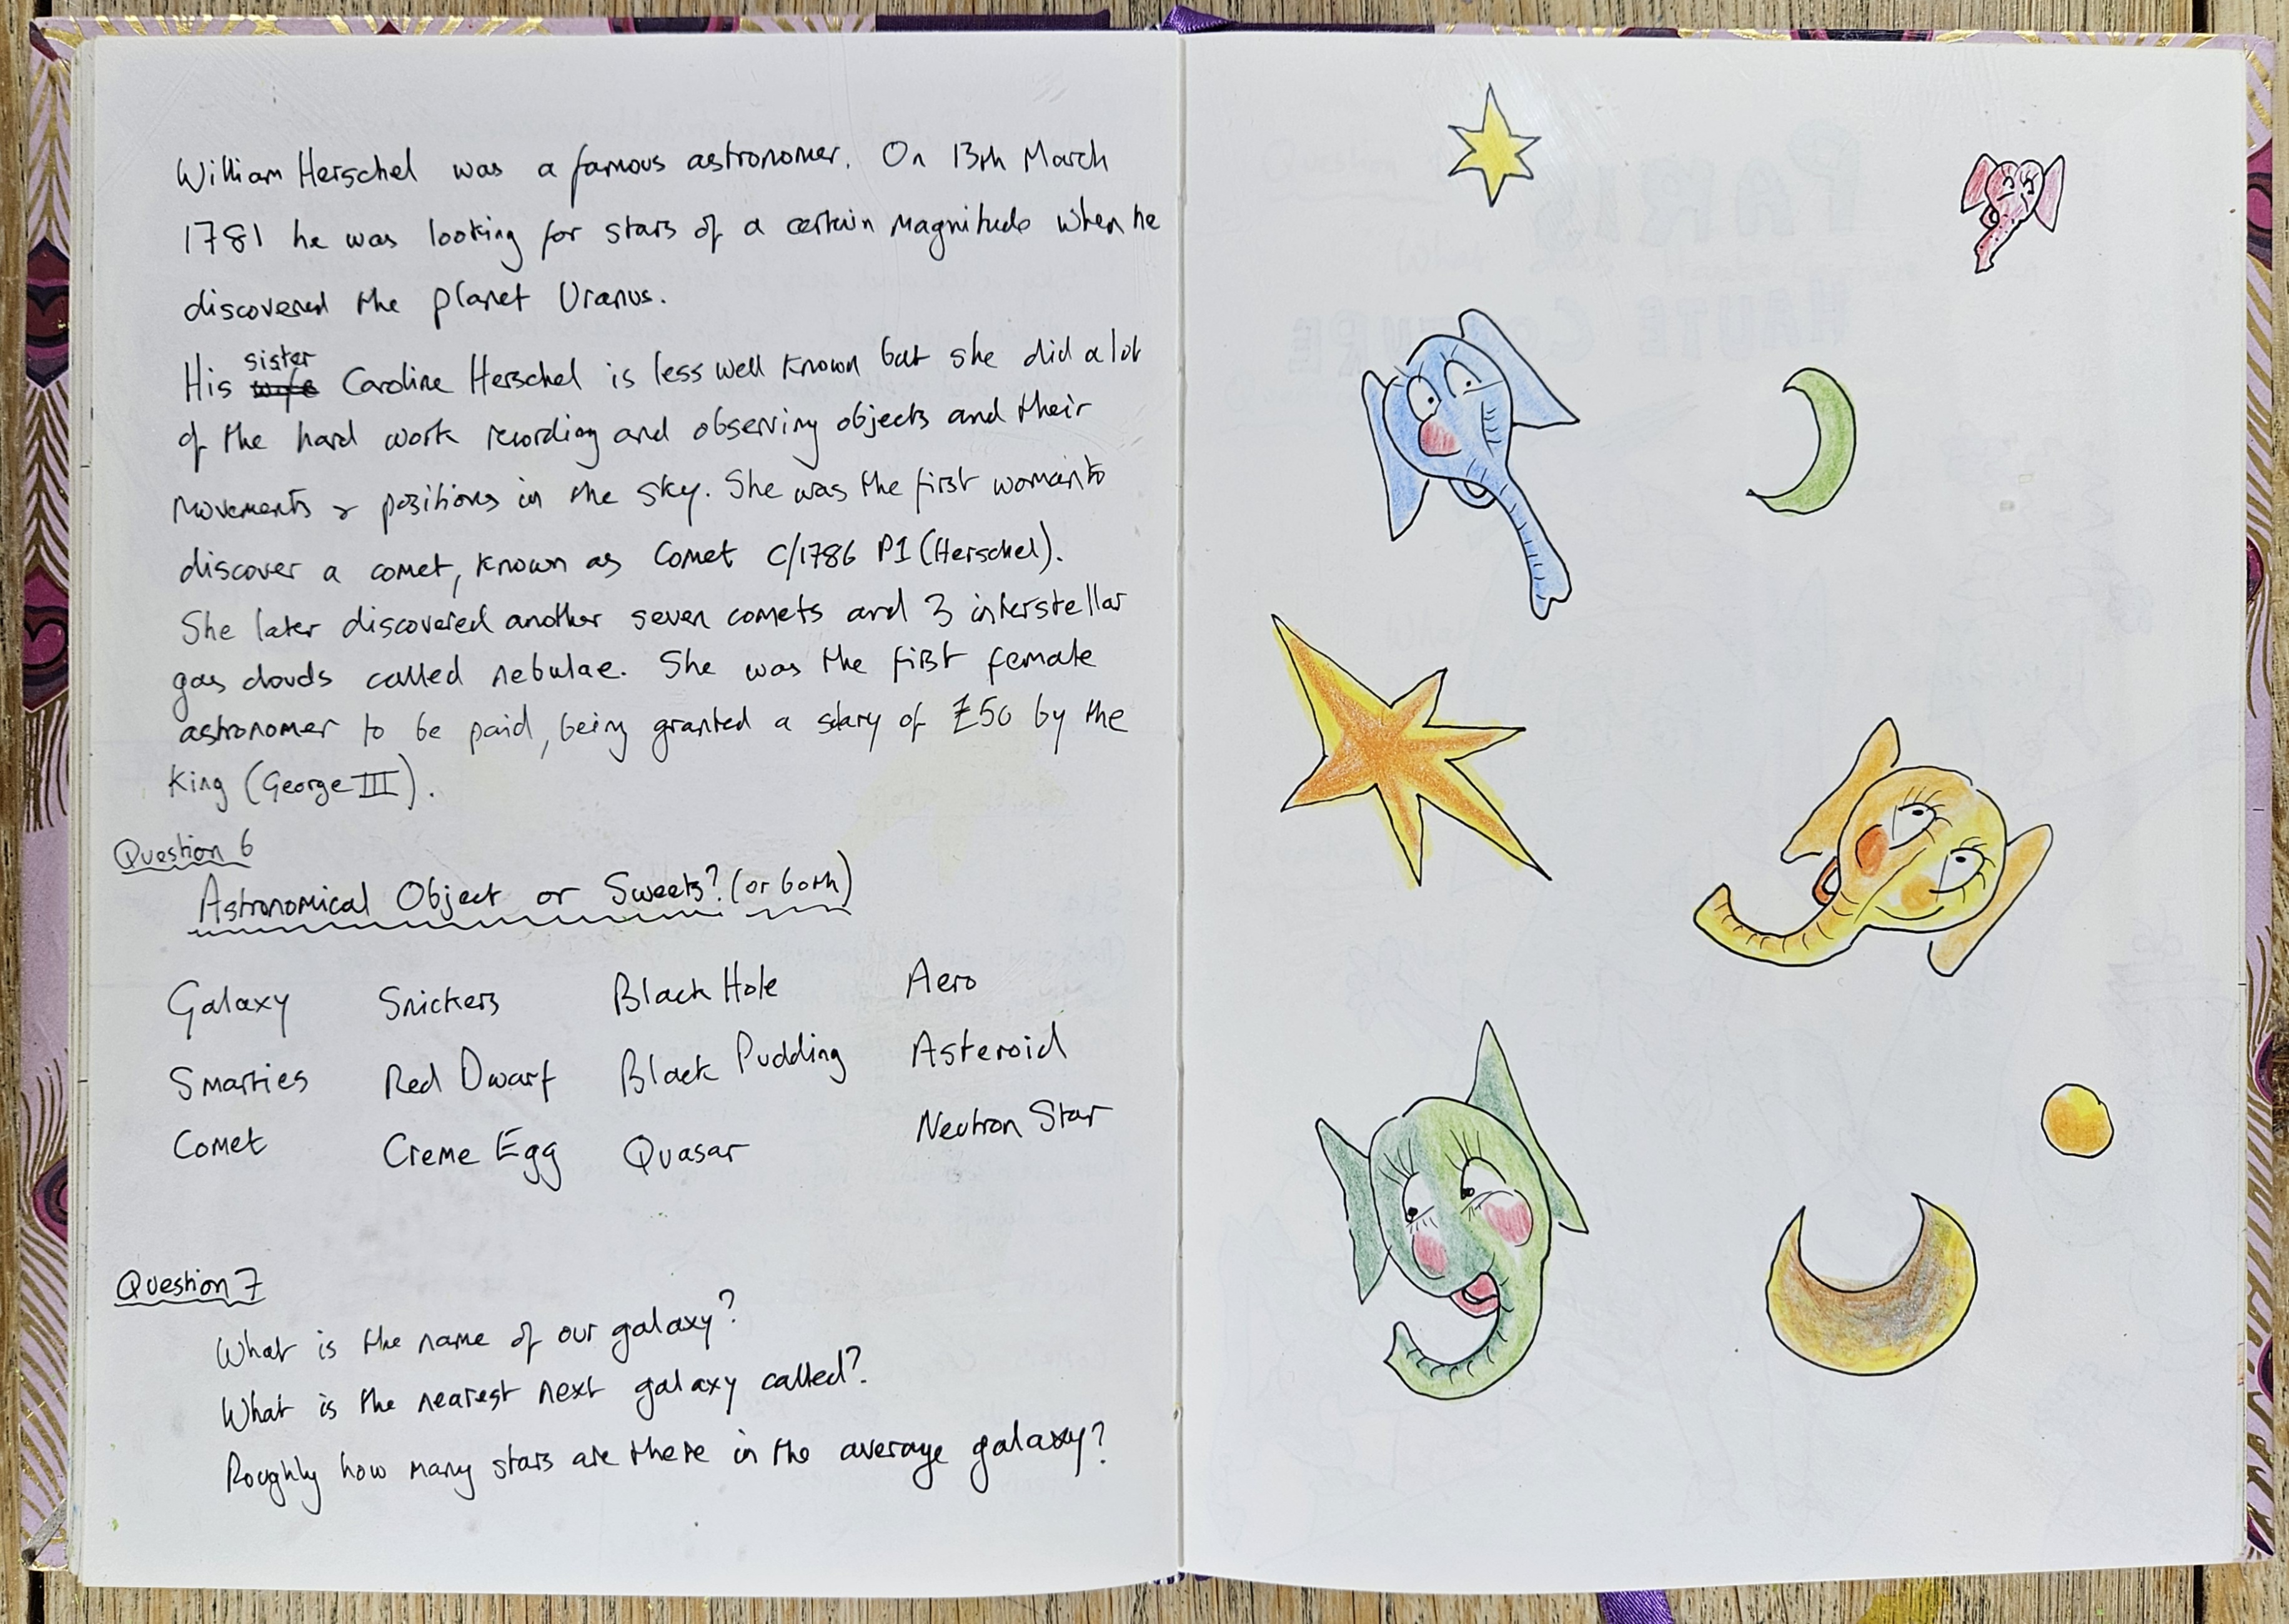 William Herschel was a famous astronomer. On 13th March
1781 he was looking for stars of a certain magnitude when he
discovered the planet Uranus.
His sister Caroline Herschel is less well known but she did a lot
of the hard work recording and observing objects and their
movements & positions in the sky. She was the first woman to
discover a comet, known as Comet C/1786 P1 (Herschel).
She later discovered another seven comets and 3 interstellar
gas clouds called nebulae. She was the first female
astronomer to be paid, being granted a salary of £50 by the
King (George III).
Question 6
Astronomical Object or Sweets? (or both)
Galaxy Snickers Black Hole Aero
Smarties Red Dwarf Black Pudding Asteroid
Comet Creme Egg Quasar Neutron Star
Question 7
What is the name of our galaxy?
What is the nearest next galaxy called?
Roughly how many stars are there in the average galaxy?